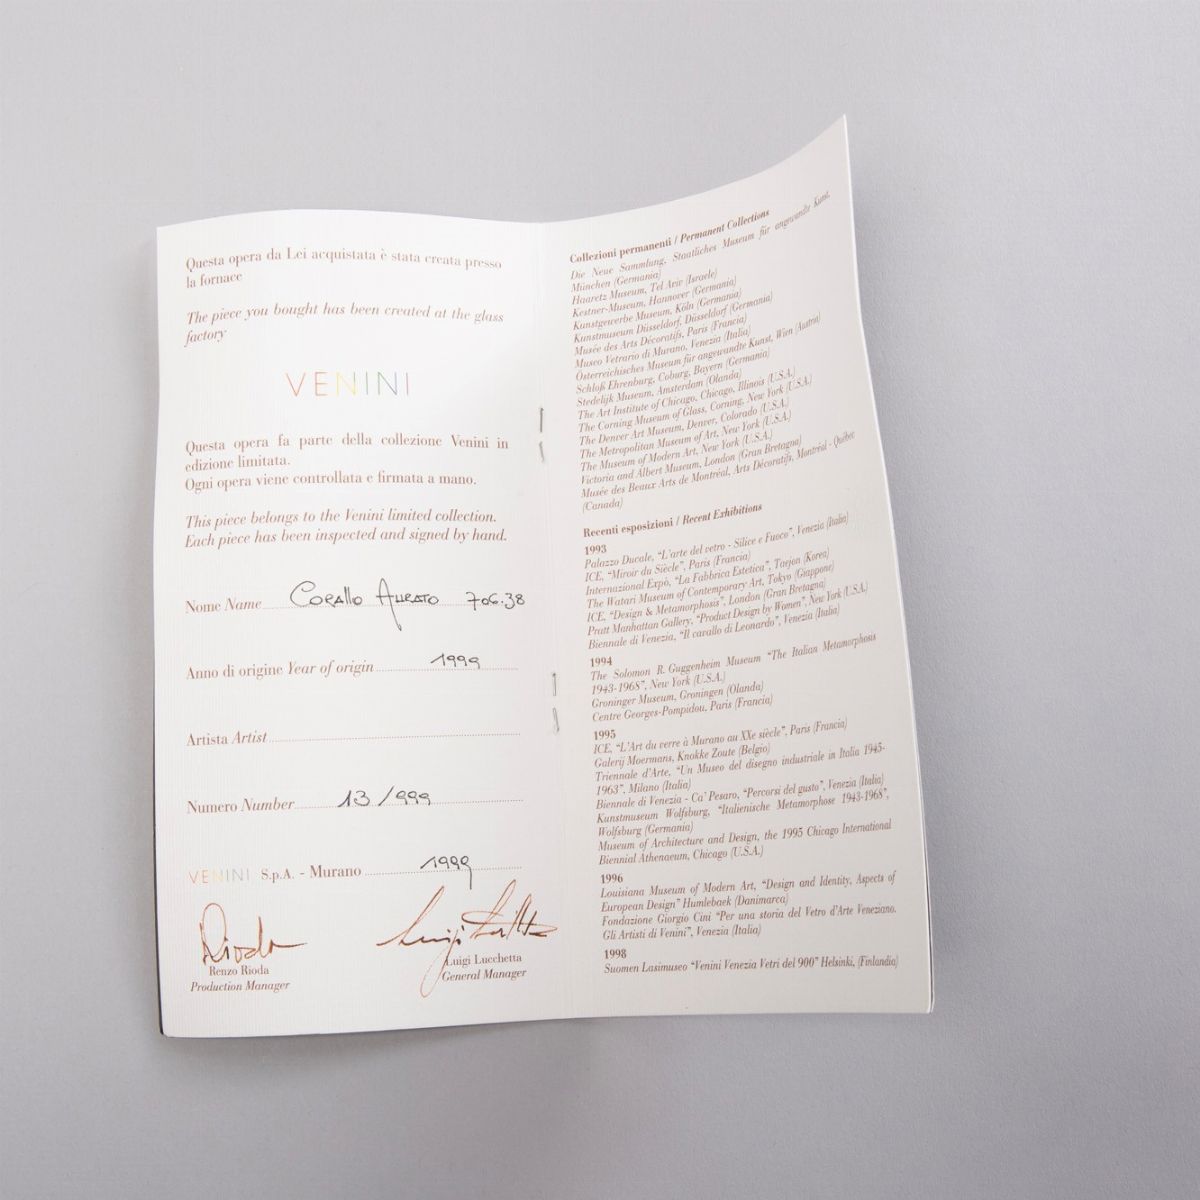 Questa opera da Lei acquistata è stata creata presso
la fornace
The piece you bought has been created at the glass
factory
VENINI
Questa opera fa parte della collezione Venini in
edizione limitata.
Ogni opera viene controllata e firmata a mano.
This piece belongs to the Venini limited collection.
Each piece has been inspected and signed by hand.
Nome Name Corallo Aurato 706.38
Anno di origine Year of origin 1999
Artista Artist
Numero Number 13/999
VENINI S.p.A. - Murano 1999
Rioda
Renzo Rioda
Production Manager
Luigi Lucchetta
General Manager
Collezioni permanenti / Permanent Collections
Die Neue Sammlung, Staatliches Museum für angewandte Kunst,
München (Germania)
Haaretz Museum, Tel Aviv (Israele)
Kestner-Museum, Hannover (Germania)
Kunstgewerbe Museum, Köln (Germania)
Kunstmuseum Düsseldorf, Düsseldorf (Germania)
Musée des Arts Décoratifs, Paris (Francia)
Museo Vetrario di Murano, Venezia (Italia)
Österreichisches Museum für angewandte Kunst, Wien (Austria)
Schloß Ehrenburg, Coburg, Bayern (Germania)
Stedelijk Museum, Amsterdam (Olanda)
The Art Institute of Chicago, Chicago, Illinois (U.S.A.)
The Corning Museum of Glass, Corning, New York (U.S.A.)
The Denver Art Museum, Denver, Colorado (U.S.A.)
The Metropolitan Museum of Art, New York (U.S.A.)
The Museum of Modern Art, New York (U.S.A.)
Victoria and Albert Museum, London (Gran Bretagna)
Musée des Beaux Arts de Montréal, Arts Décoratifs, Montréal - Québec
(Canada)
Recenti esposizioni / Recent Exhibitions
1993
Palazzo Ducale, "L'arte del vetro - Silice e Fuoco", Venezia (Italia)
ICE, "Miroir du Siècle", Paris (Francia)
Internazional Expò, "La Fabbrica Estetica", Taejon (Korea)
The Watari Museum of Contemporary Art, Tokyo (Giappone)
ICE, "Design & Metamorphosis", London (Gran Bretagna)
Pratt Manhattan Gallery, "Product Design by Women", New York (U.S.A.)
Biennale di Venezia, "Il cavallo di Leonardo", Venezia (Italia)
1994
The Solomon R. Guggenheim Museum "The Italian Metamorphosis
1943-1968", New York (U.S.A.)
Groninger Museum, Groningen (Olanda)
Centre Georges-Pompidou, Paris (Francia)
1995
ICE, "L'Art du verre à Murano au XXe siècle", Paris (Francia)
Galerij Moermans, Knokke Zoute (Belgio)
Triennale d'Arte, "Un Museo del disegno industriale in Italia 1945-
1963". Milano (Italia)
Biennale di Venezia - Ca' Pesaro, "Percorsi del gusto", Venezia (Italia)
Kunstmuseum Wolfsburg, "Italienische Metamorphose 1943-1968",
Wolfsburg (Germania)
Museum of Architecture and Design, the 1995 Chicago International
Biennial Athenaeum, Chicago (U.S.A.)
1996
Louisiana Museum of Modern Art, "Design and Identity, Aspects of
European Design" Humlebaek (Danimarca)
Fondazione Giorgio Cini "Per una storia del Vetro d'Arte Veneziano.
Gli Artisti di Venini", Venezia (Italia)
1998
Suomen Lasimuseo "Venini Venezia Vetri del 900" Helsinki, (Finlandia)